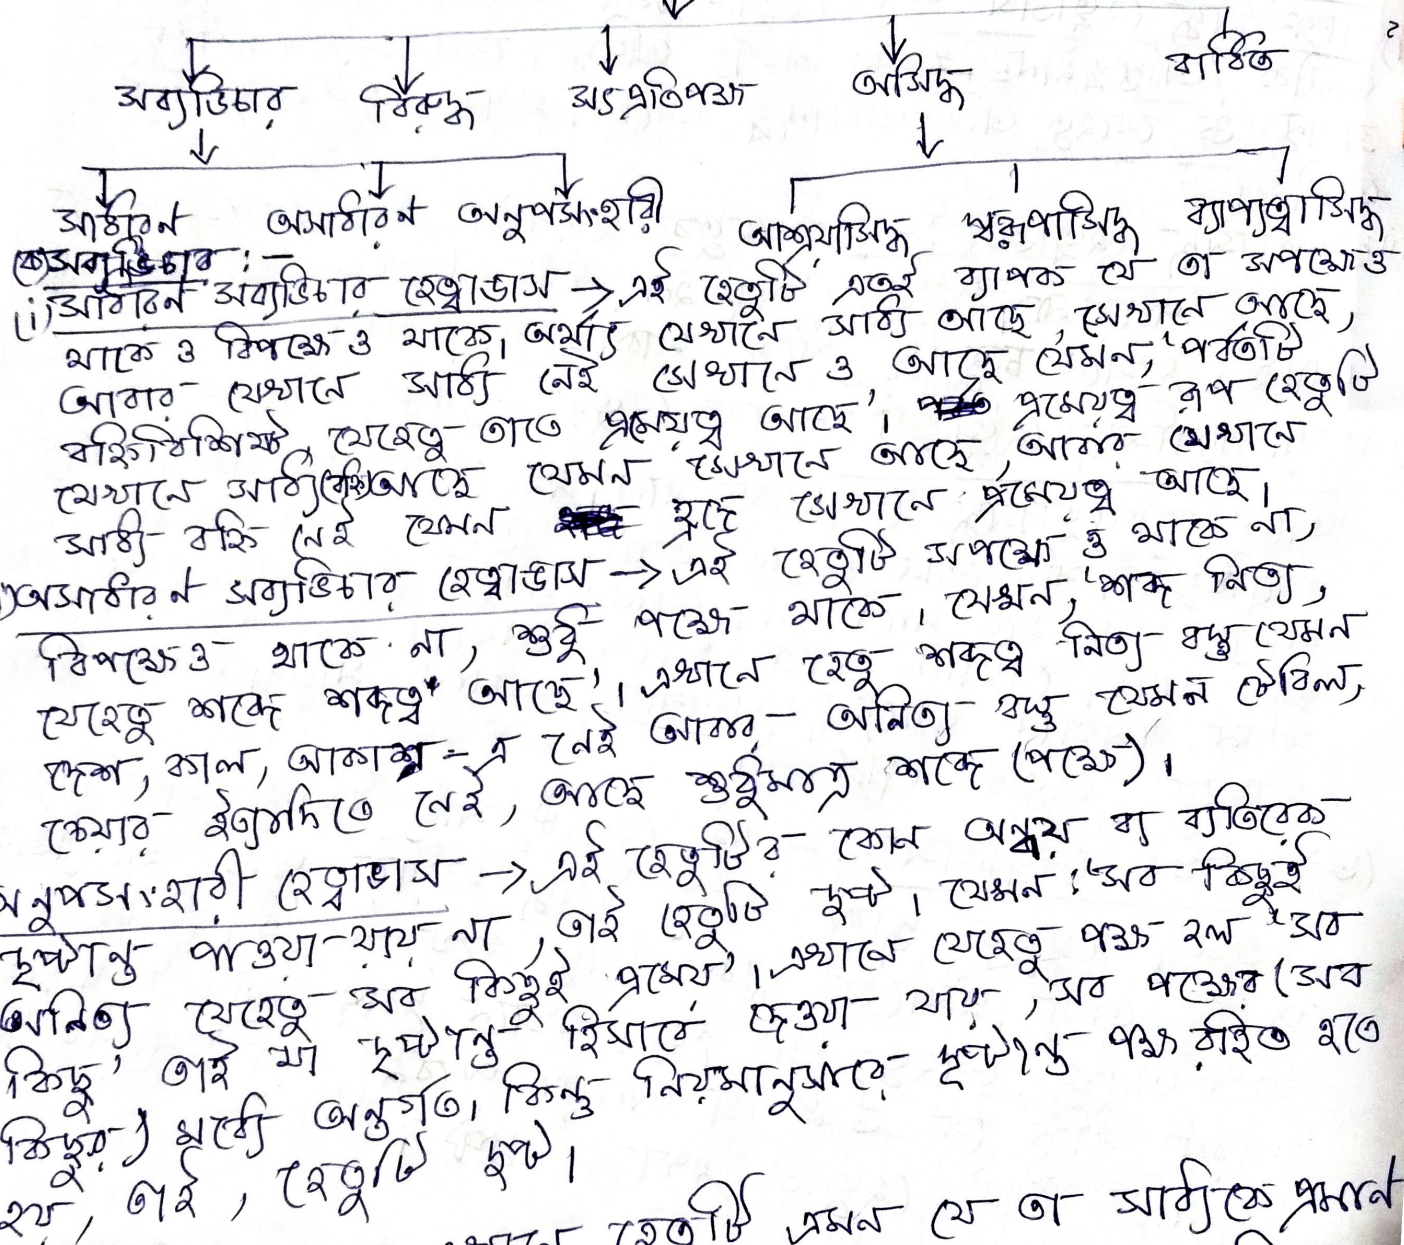 সব্যভিচার বিরুদ্ধ সৎপ্রতিপক্ষ অসিদ্ধ বাধিত
সাধারন অসাধারন অনুপসংহারী আশ্রয়াসিদ্ধ স্বরূপাসিদ্ধ ব্যাপ্যত্বাসিদ্ধ
(ক) সব্যভিচার :—
(i) সাধারন সব্যভিচার হেত্বাভাস → এই হেতুটি এতই ব্যাপক যে তা সপক্ষেও
থাকে ও বিপক্ষেও থাকে। অর্থাৎ যেখানে সাধ্য আছে, সেখানে আছে,
আবার যেখানে সাধ্য নেই সেখানে ও আছে যেমন, 'পর্বতটি
বহ্নিবিশিষ্ট, যেহেতু তাতে প্রমেয়ত্ব আছে'। প্রমেয়ত্ব রূপ হেতুটি
যেখানে সাধ্য (বহ্নি) আছে যেমন সেখানে আছে, আবার যেখানে
সাধ্য বহ্নি নেই যেমন হ্রদে সেখানে প্রমেয়ত্ব আছে।
অসাধারন সব্যভিচার হেত্বাভাস → এই হেতুটি সপক্ষে ও থাকে না,
বিপক্ষেও থাকে না, শুধু পক্ষে থাকে। যেমন, 'শব্দ নিত্য,
যেহেতু শব্দে শব্দত্ব আছে'। এখানে হেতু শব্দত্ব নিত্য বস্তু যেমন
দেশ, কাল, আকাশ - এ নেই আবার অনিত্য বস্তু যেমন টেবিল,
চেয়ার ইত্যাদিতে নেই, আছে শুধুমাত্র শব্দে (পক্ষে)।
অনুপসংহারী হেত্বাভাস → এই হেতুটির কোন অন্বয় বা ব্যতিরেক
দৃষ্টান্ত পাওয়া যায় না, তাই হেতুটি দুষ্ট। যেমন : 'সব কিছুই
অনিত্য যেহেতু সব কিছুই প্রমেয়'। এখানে যেহেতু পক্ষ হল 'সব
কিছু' তাই যা দৃষ্টান্ত হিসাবে দেওয়া যায়, সব পক্ষের (সব
কিছুর) মধ্যে অন্তর্গত। কিন্তু নিয়মানুসারে দৃষ্টান্ত পক্ষ বহির্ভূত হতে
হয়, তাই, হেতুটি দুষ্ট।
হেতুটি এমন যে তা সাধ্যকে প্রমাণ